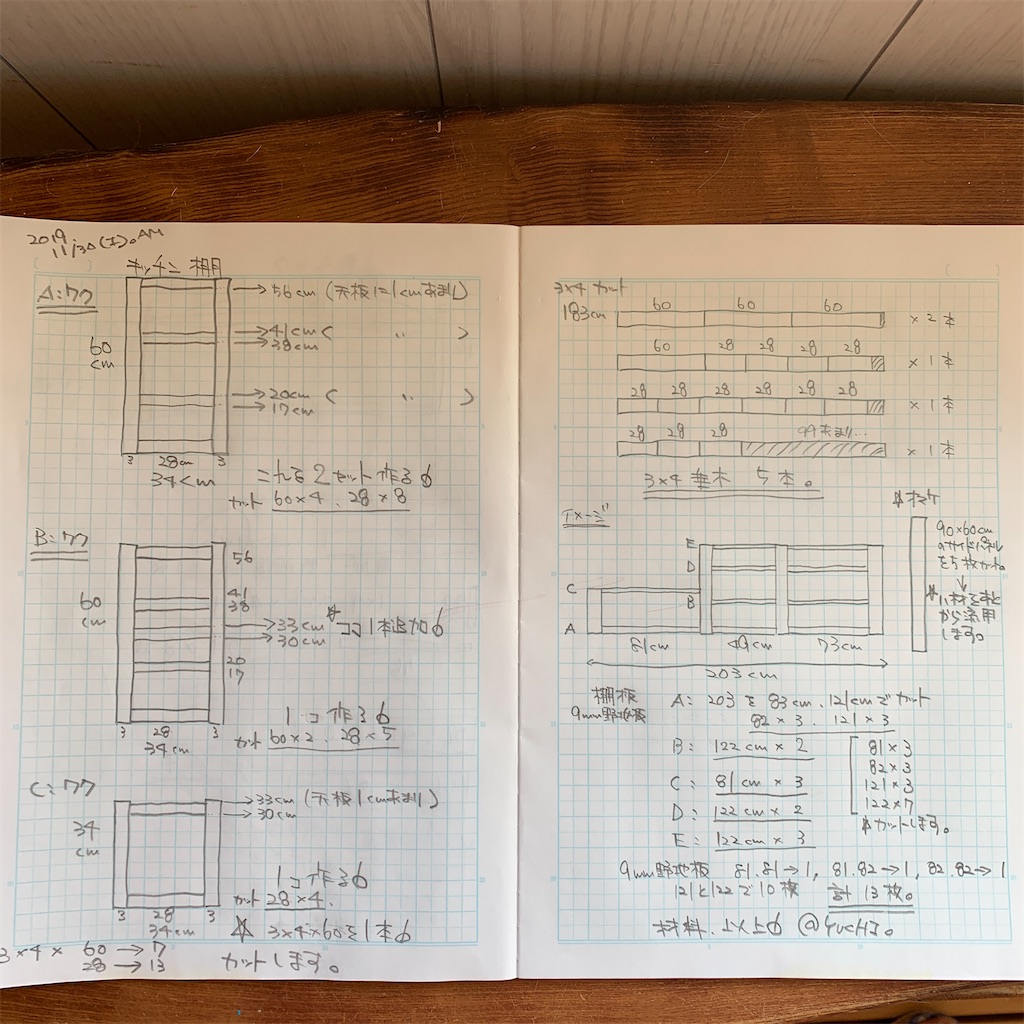 2019
11/30(土)。AM
キッチン 棚
A:ワク
60
cm
→56cm (天板に1cmあまり)
→41cm ( 〃 )
→38cm
→20cm ( 〃 )
→17cm
3 28cm 3
34cm
これを2セット作る
カット 60×4. 28×8
B:ワク
60
cm
56
41
38
→33cm
→30cm
ココ1本追加
20
17
3 28 3
34cm
1コ作る
カット 60×2. 28×5
C:ワク
34
cm
→33cm (天板1cmあまり)
→30cm
3 28 3
34cm
1コ作る
カット 28×4.
☆ 3×4×60を1本
カットします。
3×4× 60→7
28→13
3×4 カット
183cm
60 60 60 ×2本
60 28 28 28 28 ×1本
28 28 28 28 28 28 ×1本
28 28 28 99あまり... ×1本
3×4 垂木 5本。
イメージ
E
D
C
B
A
81cm 49cm 73cm
203cm
90×60cm
のサイドパネル
を5枚カット。
↓
から流用
します。
棚板
9mm野地板
A: 203を83cm.121cmでカット
82×3. 121×3
B: 122cm×2
C: 81cm×3
D: 122cm×2
E: 122cm×3
81×3
82×3
121×3
122×7
カットします。
9mm野地板 81.81→1, 81.82→1, 82.82→1
121と122で10枚 計13枚。
材料.以上 @YUCHI。